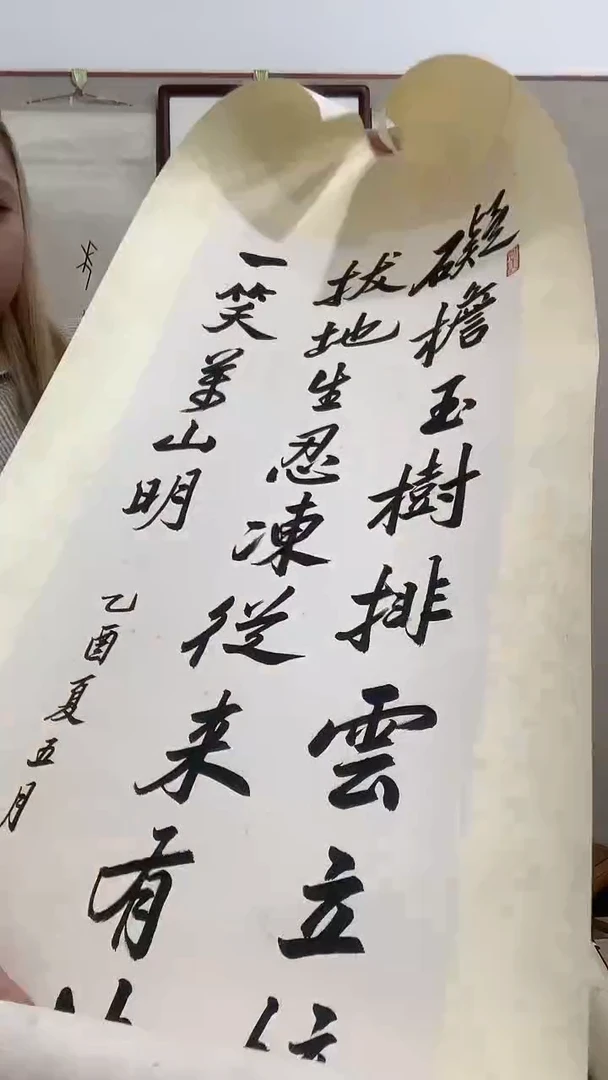 礙檐玉樹排雲立
拔地生忍凍從来有
一笑萬山明
乙酉夏五月